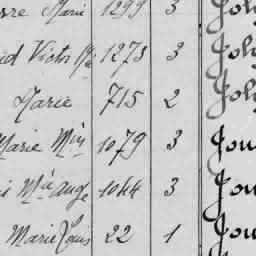 Marie 1299 3 Joly
Victor 1273 3 Joly
Marie 715 2 Joly
Marie 1079 3 Jou
Ange 1044 3 Jou
Marie Louis 22 1 Jou